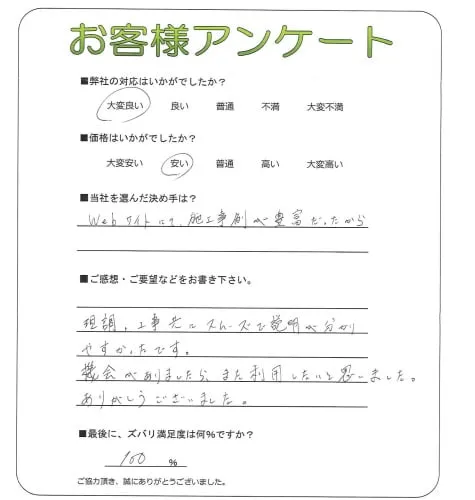 お客様アンケート
■弊社の対応はいかがでしたか？
大変良い 良い 普通 不満 大変不満
■価格はいかがでしたか？
大変安い 安い 普通 高い 大変高い
■当社を選んだ決め手は？
Webサイトにて、施工事例が豊富だったから
■ご感想・ご要望などをお書き下さい。
現調、工事共にスムーズで説明が分かり
やすかったです。
機会がありましたら、また利用したいと思いました。
ありがとうございました。
■最後に、ズバリ満足度は何%ですか？
100 %
ご協力頂き、誠にありがとうございました。